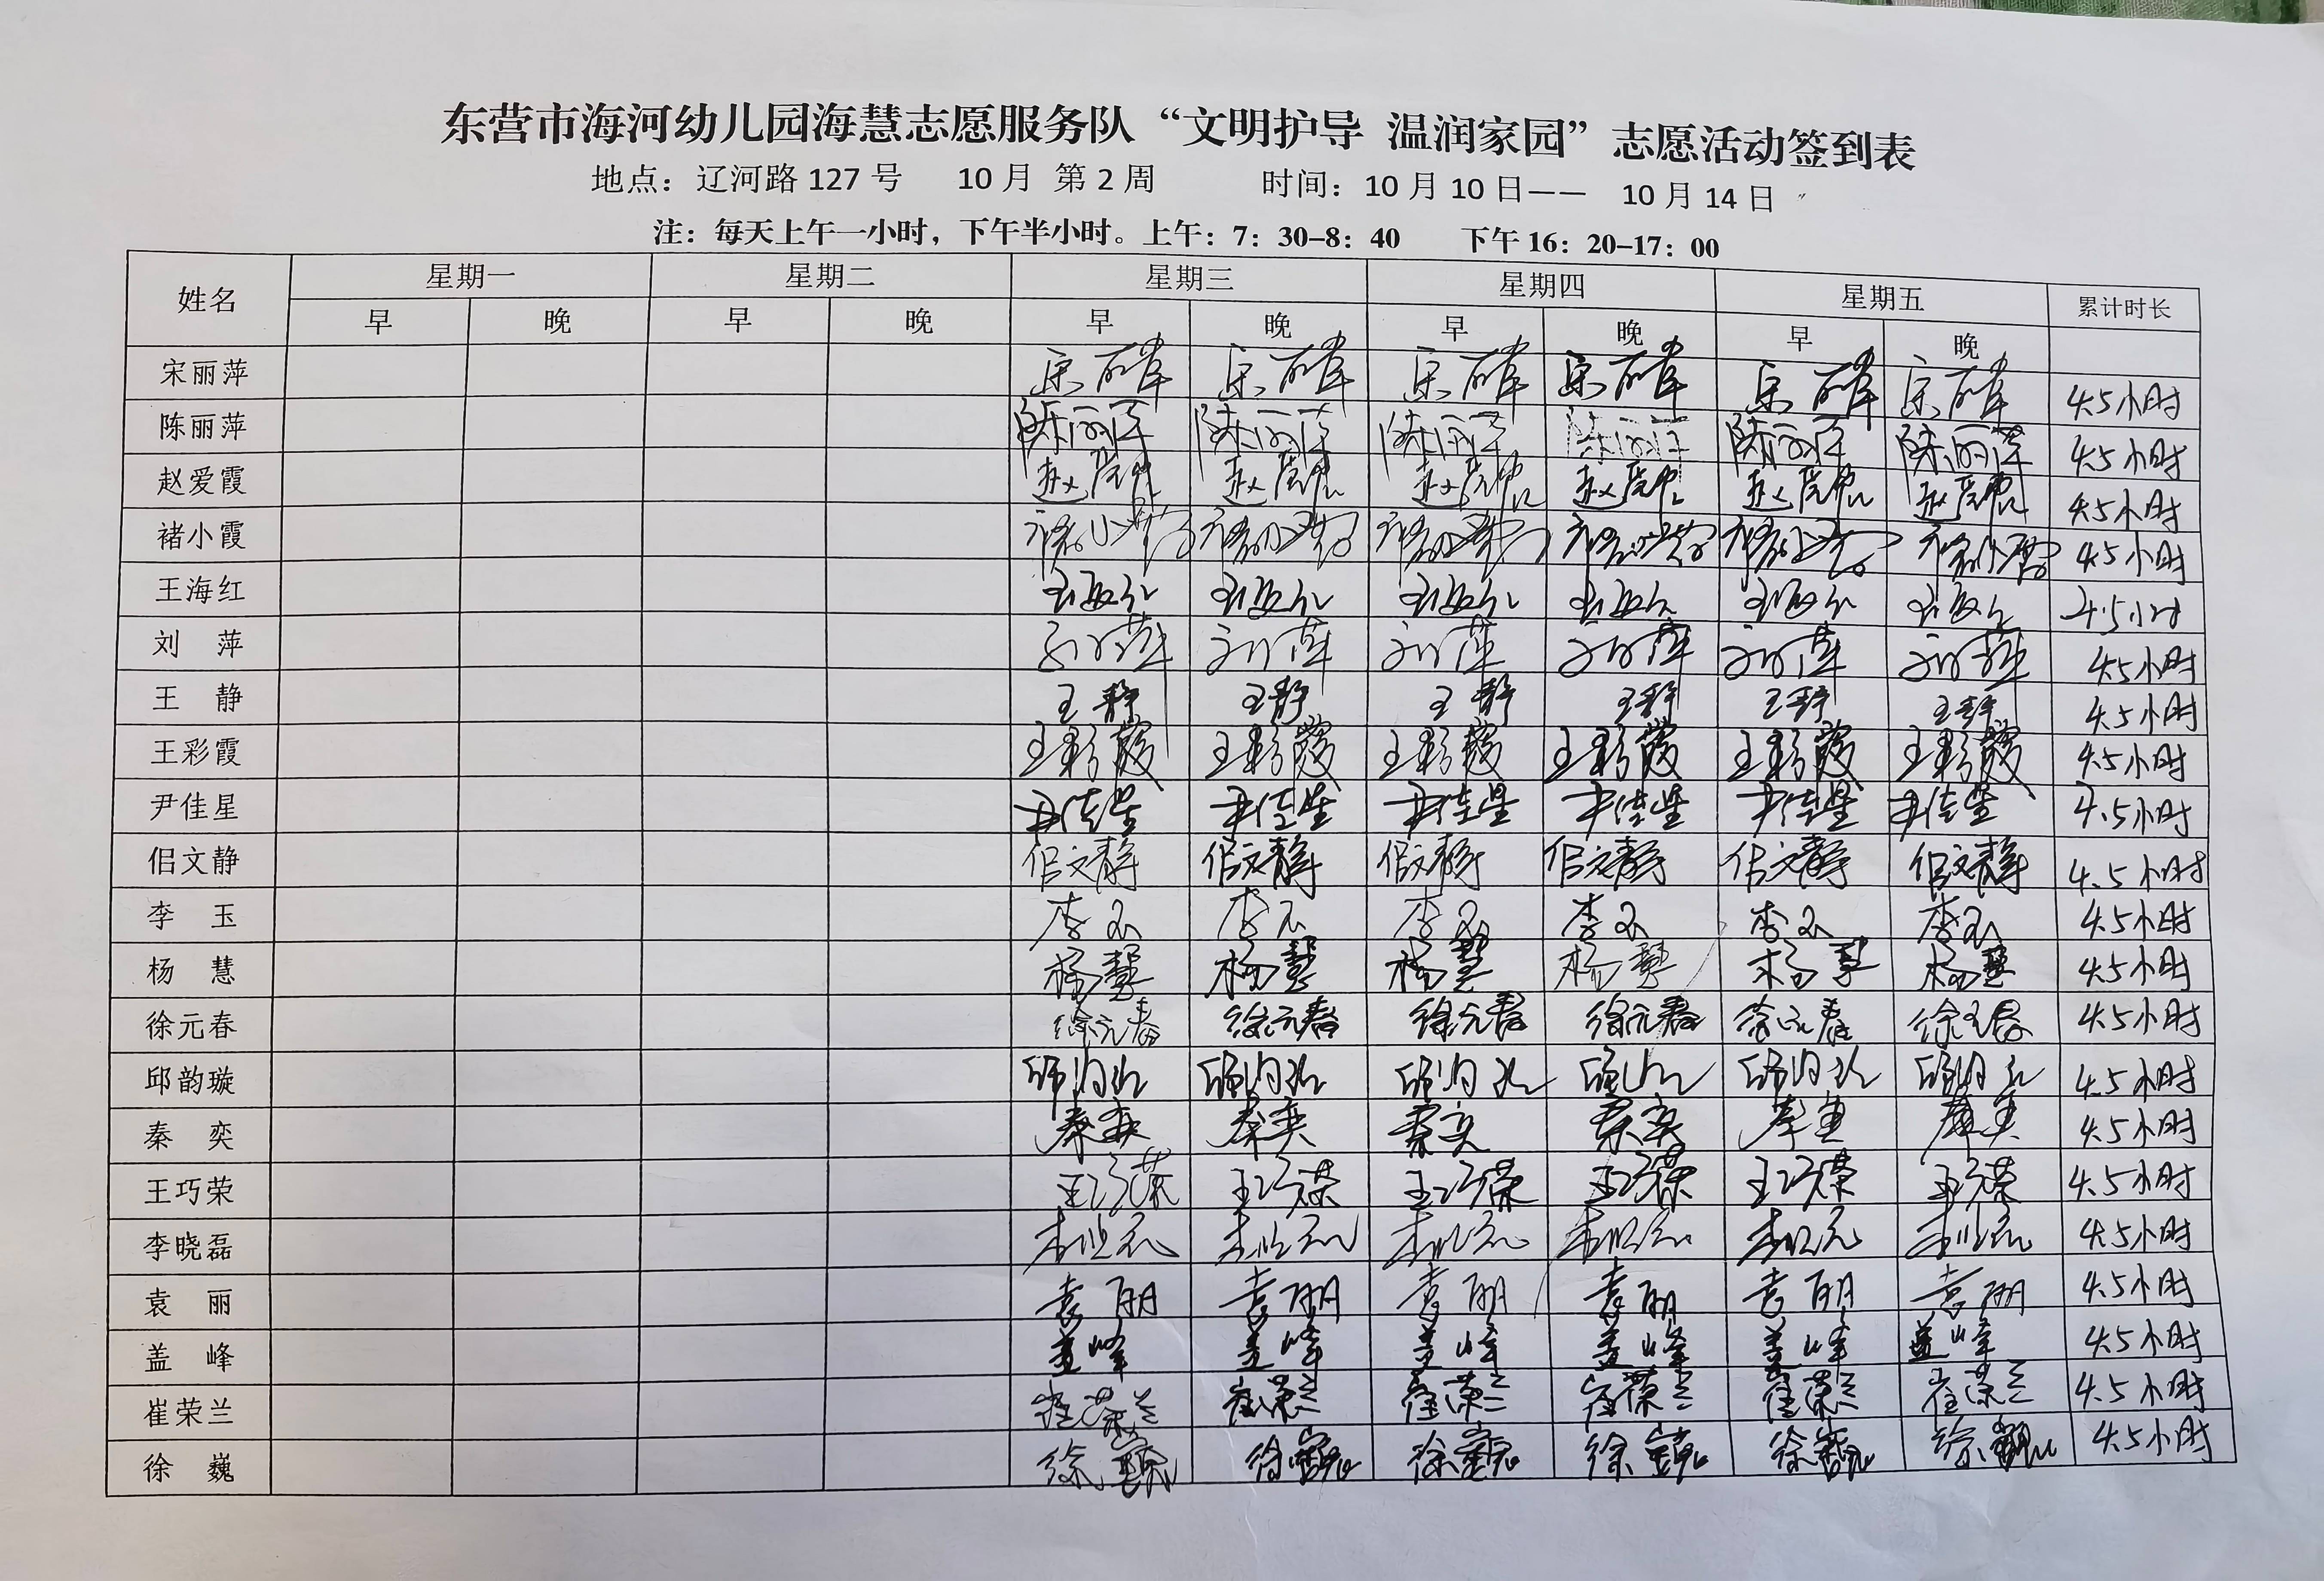 东营市海河幼儿园海慧志愿服务队“文明护导 温润家园”志愿活动签到表
地点：辽河路 127 号 10 月 第 2 周 时间：10 月 10 日—— 10 月 14 日
注：每天上午一小时，下午半小时。上午：7：30-8：40 下午 16：20-17：00
姓名 星期一 星期二 星期三 星期四 星期五 累计时长
早 晚 早 晚 早 晚 早 晚 早 晚
宋丽萍 宋丽萍 宋丽萍 宋丽萍 宋丽萍 宋丽萍 宋丽萍 4.5小时
陈丽萍 陈丽萍 陈丽萍 陈丽萍 陈丽萍 陈丽萍 陈丽萍 4.5小时
赵爱霞 赵爱霞 赵爱霞 赵爱霞 赵爱霞 赵爱霞 赵爱霞 4.5小时
褚小霞 褚小霞 褚小霞 褚小霞 褚小霞 褚小霞 褚小霞 4.5小时
王海红 王海红 王海红 王海红 王海红 王海红 王海红 4.5小时
刘 萍 刘萍 刘萍 刘萍 刘萍 刘萍 刘萍 4.5小时
王 静 王静 王静 王静 王静 王静 王静 4.5小时
王彩霞 王彩霞 王彩霞 王彩霞 王彩霞 王彩霞 王彩霞 4.5小时
尹佳星 尹佳星 尹佳星 尹佳星 尹佳星 尹佳星 尹佳星 4.5小时
侣文静 侣文静 侣文静 侣文静 侣文静 侣文静 侣文静 4.5小时
李 玉 李玉 李玉 李玉 李玉 李玉 李玉 4.5小时
杨 慧 杨慧 杨慧 杨慧 杨慧 杨慧 杨慧 4.5小时
徐元春 徐元春 徐元春 徐元春 徐元春 徐元春 徐元春 4.5小时
邱韵璇 邱韵璇 邱韵璇 邱韵璇 邱韵璇 邱韵璇 邱韵璇 4.5小时
秦 奕 秦奕 秦奕 秦奕 秦奕 秦奕 秦奕 4.5小时
王巧荣 王巧荣 王巧荣 王巧荣 王巧荣 王巧荣 王巧荣 4.5小时
李晓磊 李晓磊 李晓磊 李晓磊 李晓磊 李晓磊 李晓磊 4.5小时
袁 丽 袁丽 袁丽 袁丽 袁丽 袁丽 袁丽 4.5小时
盖 峰 盖峰 盖峰 盖峰 盖峰 盖峰 盖峰 4.5小时
崔荣兰 崔荣兰 崔荣兰 崔荣兰 崔荣兰 崔荣兰 崔荣兰 4.5小时
徐 巍 徐巍 徐巍 徐巍 徐巍 徐巍 徐巍 4.5小时